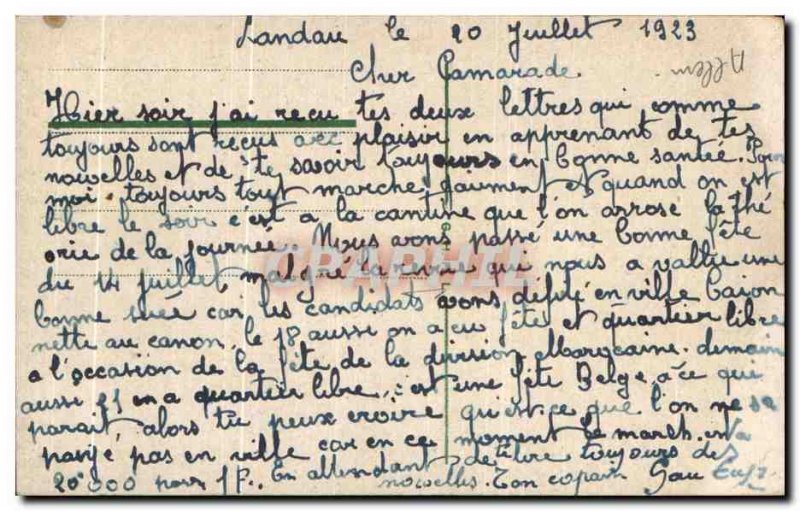 Landau le 20 Juillet 1923
Cher Camarade
Hier soir j'ai reçu tes deux lettres qui comme
toujours sont reçus avec plaisir en apprenant de tes
nouvelles et de te savoir toujours en bonne santée. Pour
moi toujours tout marche gaiment et quand on est
libre le soir c'est a la cantine que l'on arrose la thé
orie de la journée. Nous avons passé une bonne fête
du 14 juillet malgré la revue qui nous a vallue une
bonne suée car les candidats avons défilé en ville baion
nette au canon, le 18 aussi on a eu fête et quartier libre
a l'occasion de la fête de la division Marocaine. demain
aussi 21 on a quartier libre, c'est une fête Belge a ce qui
parait, alors tu peux croire qu'est ce que l'on ne se
pas en ville car en ce moment le mark
20 000 pour 1F. En attendant de lire toujours des
nouvelles. Ton copain
CARTE CPAPHIL